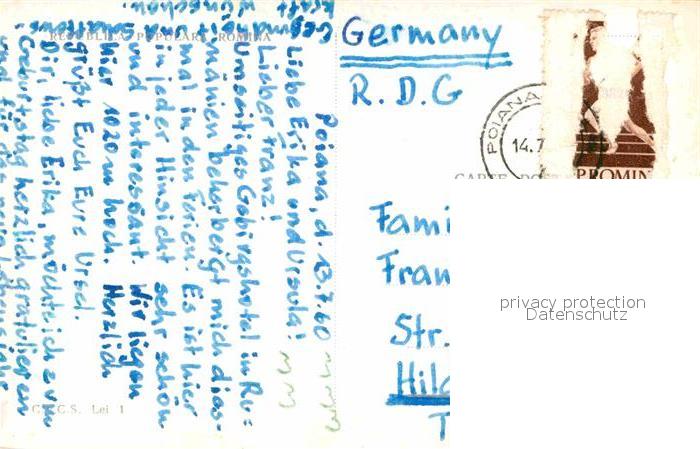 REPUBLICA POPULARA ROMINA
Poiana, d. 13.7.60
Liebe Erika und Ursula!
Lieber Franz!
Umseitiges Gebirgshotel in Ru=
mänien beherbergt mich dies-
mal in den Ferien. Es ist hier
in jeder Hinsicht sehr schön
und interessant. Wir liegen
hier 1020 m hoch. Herzlich
grüßt Euch Eure Ursel.
Dir, liebe Erika, möchte ich zum
Geburtstag herzlich gratulieren
und für das neue Lebensjahr
kraft wünschen.
C.P.C.S. Lei 1
Germany
R.D.G
POIANA
14.7
CARTE POSTALA
Fami
Fran
Str.
Hild
T
PROMIN
privacy protection
Datenschutz